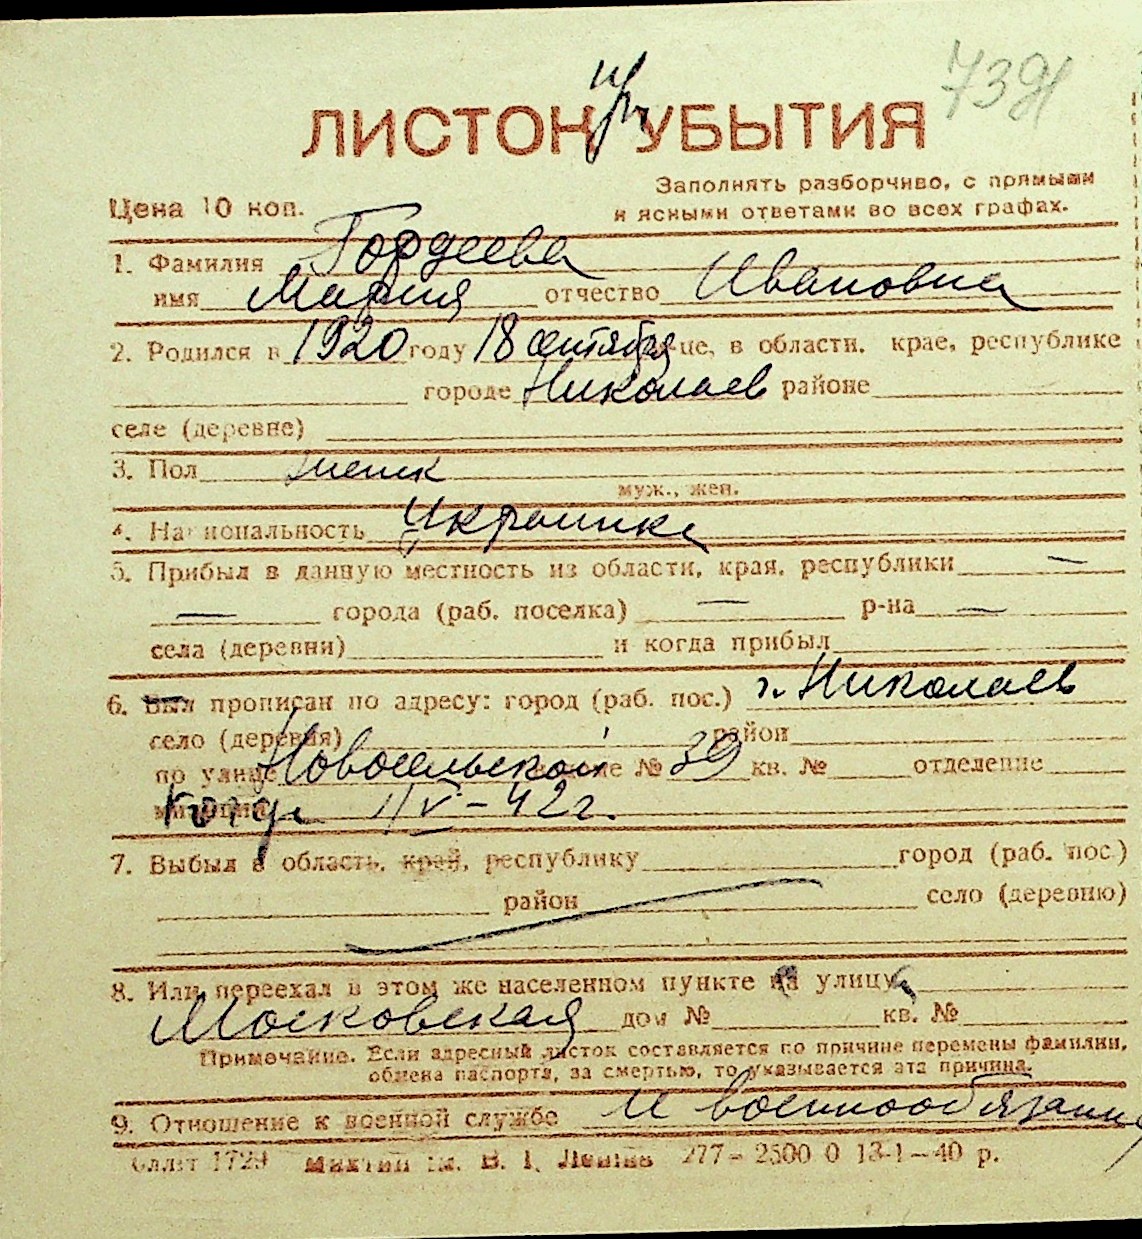 739
ЛИСТОК УБЫТИЯ
Заполнять разборчиво, с прямыми
Цена 10 коп.
и ясными ответами во всех графах.
1. Фамилия Гордеева
имя Мария отчество Ивановна
2. Родился в 1920 году 18 сентября -це, в области, крае, республике
городе Николаев районе
селе (деревне)
3. Пол женск
муж., жен.
4. Национальность Украинка
5. Прибыл в данную местность из области, края, республики —
— города (раб. поселка) — р-на —
села (деревни) и когда прибыл
6. Был прописан по адресу: город (раб. пос.) г. Николаев
село (деревня) район
по улице Новосельской № 39 кв. № отделение
милиции IV – 42 г.
7. Выбыл в область, край, республику город (раб. пос.)
район село (деревню)
8. Или переехал в этом же населенном пункте на улицу
Московская дом № кв. №
Примечание. Если адресный листок составляется по причине перемены фамилии,
обмена паспорта, за смертью, то указывается эта причина.
9. Отношение к военной службе военнообязанная
1729 им. В. І. Леніна 277 – 2500 0 13-1 – 40 р.